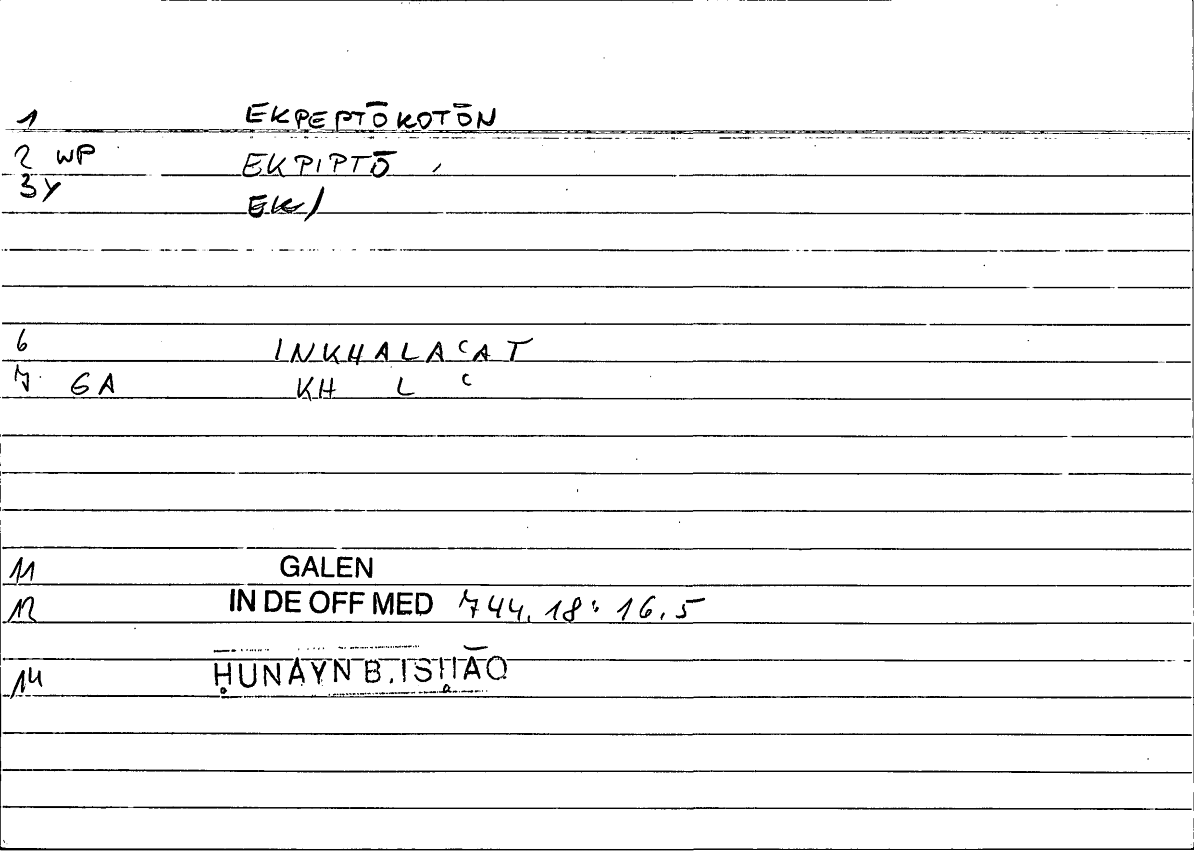 1 EKPEPTŌKOTŌN
2 WP EKPIPTŌ
3Y EK/
6 INKHALAʿAT
7 GA KH L ʿ
11 GALEN
12 IN DE OFF MED 744.18: 16.5
14 ḤUNAYN B. ISḤĀQ